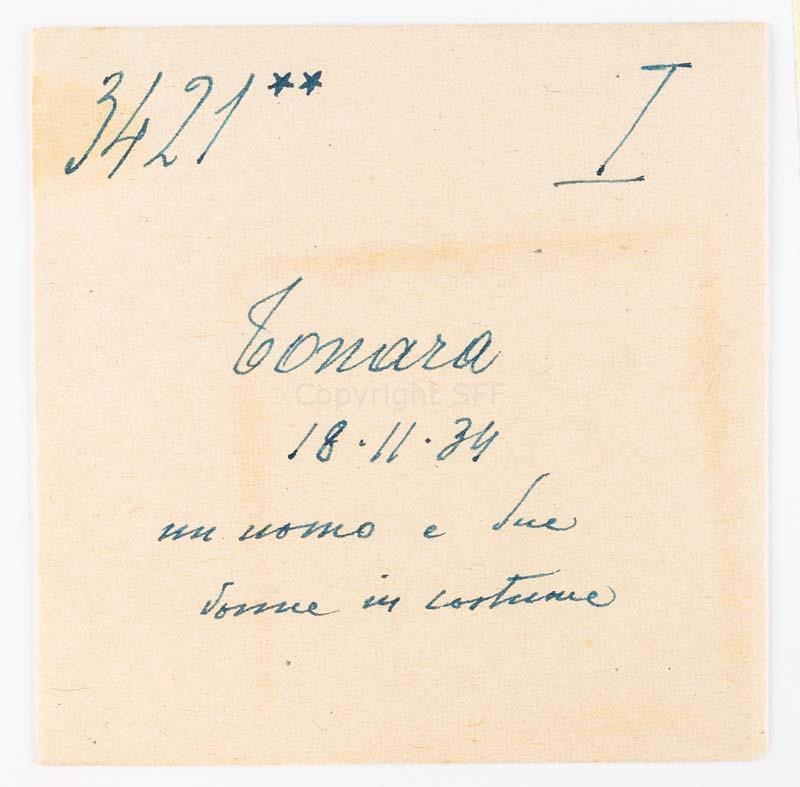 3421** I
Tonara
Copyright SFF
18.11.34
un uomo e due
donne in costume